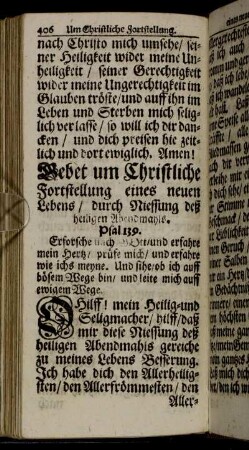 406 Um Christliche Fortstellung.
nach Christo mich umsehe/ sei-
ner Heiligkeit wider meine Un-
heiligkeit / seiner Gerechtigkeit
wider meine Ungerechtigkeit im
Glauben tröste/ und auff ihn im
Leben und Sterben mich selig-
lich verlasse/ so will ich dir dan-
cken / und dich preisen hie zeit-
lich und dort ewiglich. Amen!
Gebet um Christliche
Fortstellung eines neuen
Lebens/ durch Niessung deß
heiligen Abendmahls.
Psal 139.
Erforsche mich GOtt/ und erfahre
mein Hertz/ prüfe mich/ und erfahre
wie ichs meyne. Und sihe/ ob ich auff
bösem Wege bin/ und leite mich auff
ewigem Wege.
O Hilff! mein Heilig-und
Seligmacher/ hilff/ daß
mir diese Niessung deß
heiligen Abendmahls gereiche
zu meines Lebens Besserung.
Ich habe dich den Allerheilig-
sten/ den Allerfrömmesten/ den
Aller-